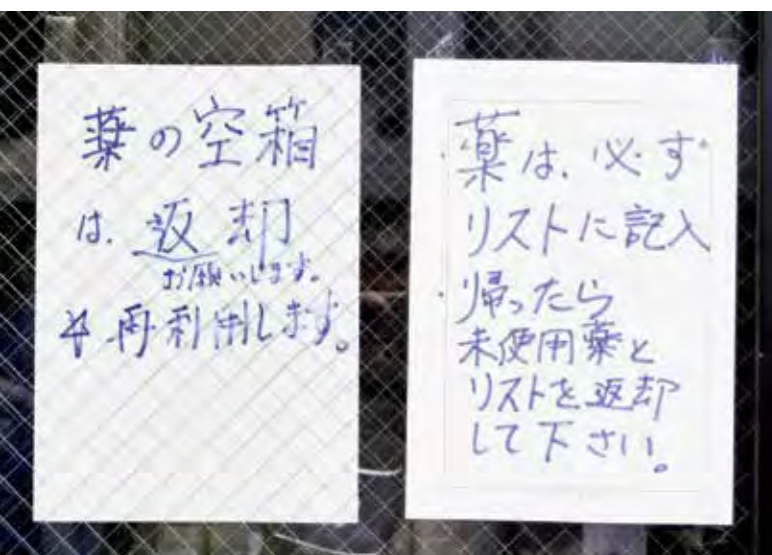 薬の空箱
は、返却
お願いします。
※再利用します。
・薬は、必ず
リストに記入
・帰ったら
未使用薬と
リストを返却
して下さい。